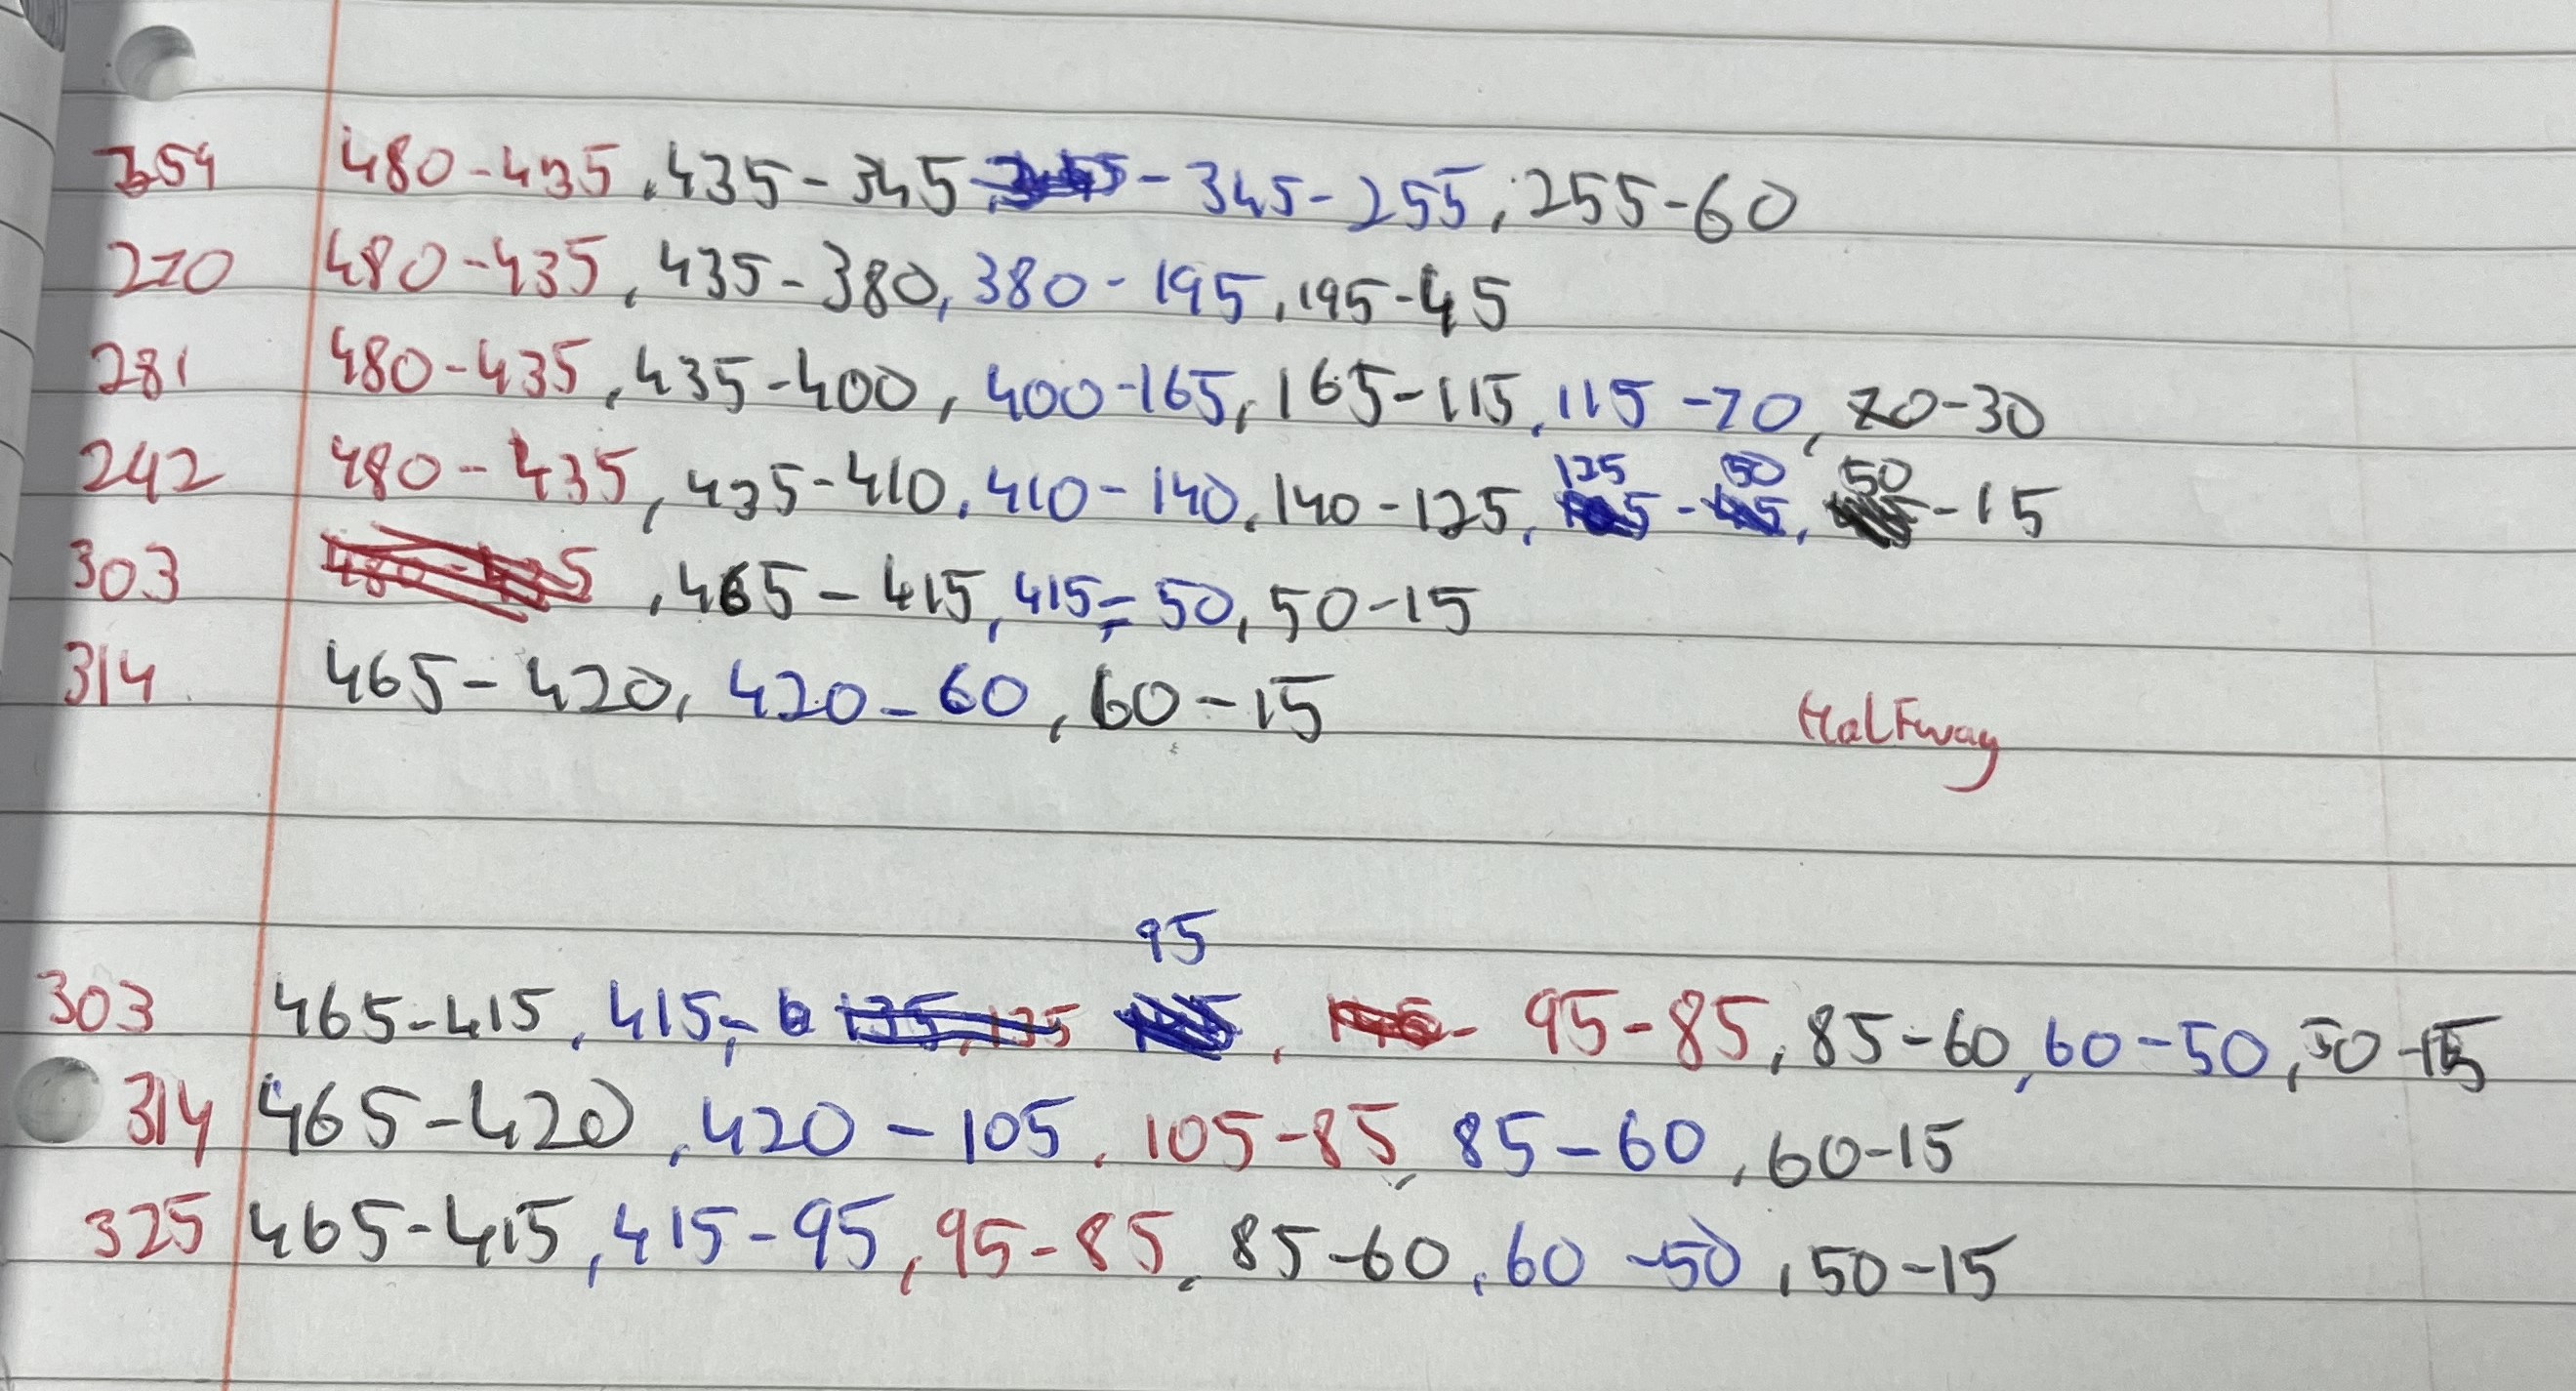 254 480-435, 435-345, - 345-255, 255-60
270 480-435, 435-380, 380-195, 195-45
281 480-435, 435-400, 400-165, 165-115, 115-70, 70-30
242 480-435, 435-410, 410-140, 140-125, 125-50, 50-15
303 480-435, 465-415, 415-50, 50-15
314 465-420, 420-60, 60-15
Halfway
303 465-415, 415-95, 95-85, 85-60, 60-50, 50-15
314 465-420, 420-105, 105-85, 85-60, 60-15
325 465-415, 415-95, 95-85, 85-60, 60-50, 50-15